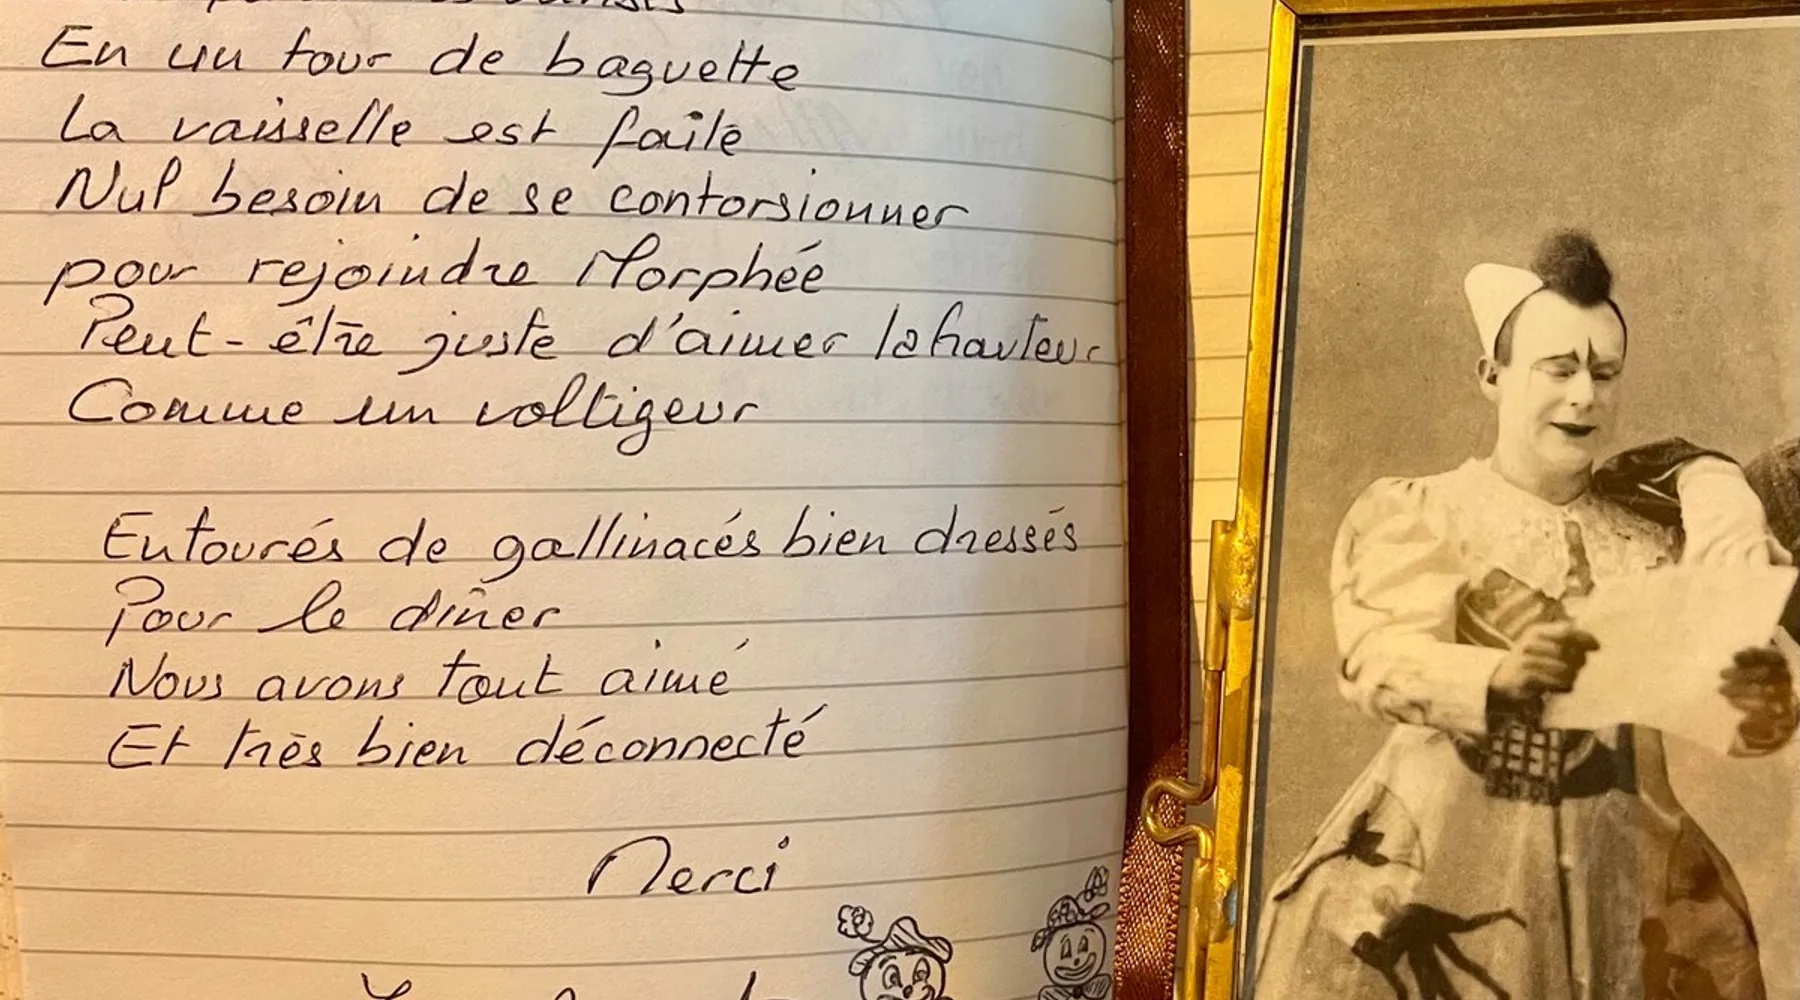 En un tour de baguette
La vaisselle est faite
Nul besoin de se contorsionner
pour rejoindre Morphée
Peut-être juste d'aimer la hauteur
Comme un voltigeur
Entourés de gallinacés bien dressés
Pour le dîner
Nous avons tout aimé
Et très bien déconnecté
Merci